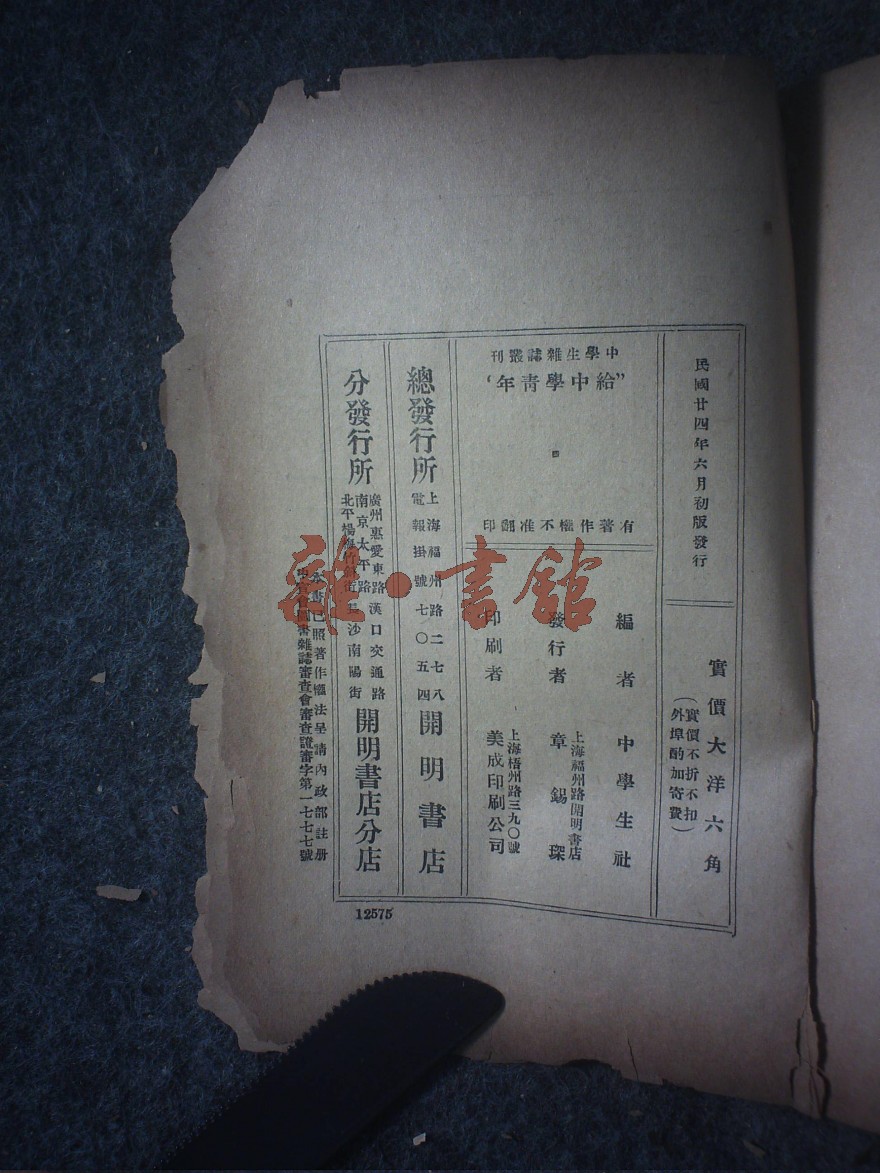 民國廿四年六月初版發行
實價大洋六角
（實價不折不扣
外埠酌加寄費）
中學生雜誌叢刊
“給中學青年”
有著作權不准翻印
編者 中學生社
發行者 章錫琛
上海福州路開明書店
印刷者 美成印刷公司
上海梧州路三九〇號
總發行所 開明書店
上海福州路二七八
電報掛號七〇五四
分發行所 開明書店分店
廣州惠愛東路 漢口交通路
南京太平路 長沙南陽街
北平楊梅竹斜街
本書已照著作權法呈請內政部註冊
圖書雜誌審查會審查證審字第一七七七號
12575
雜·書館